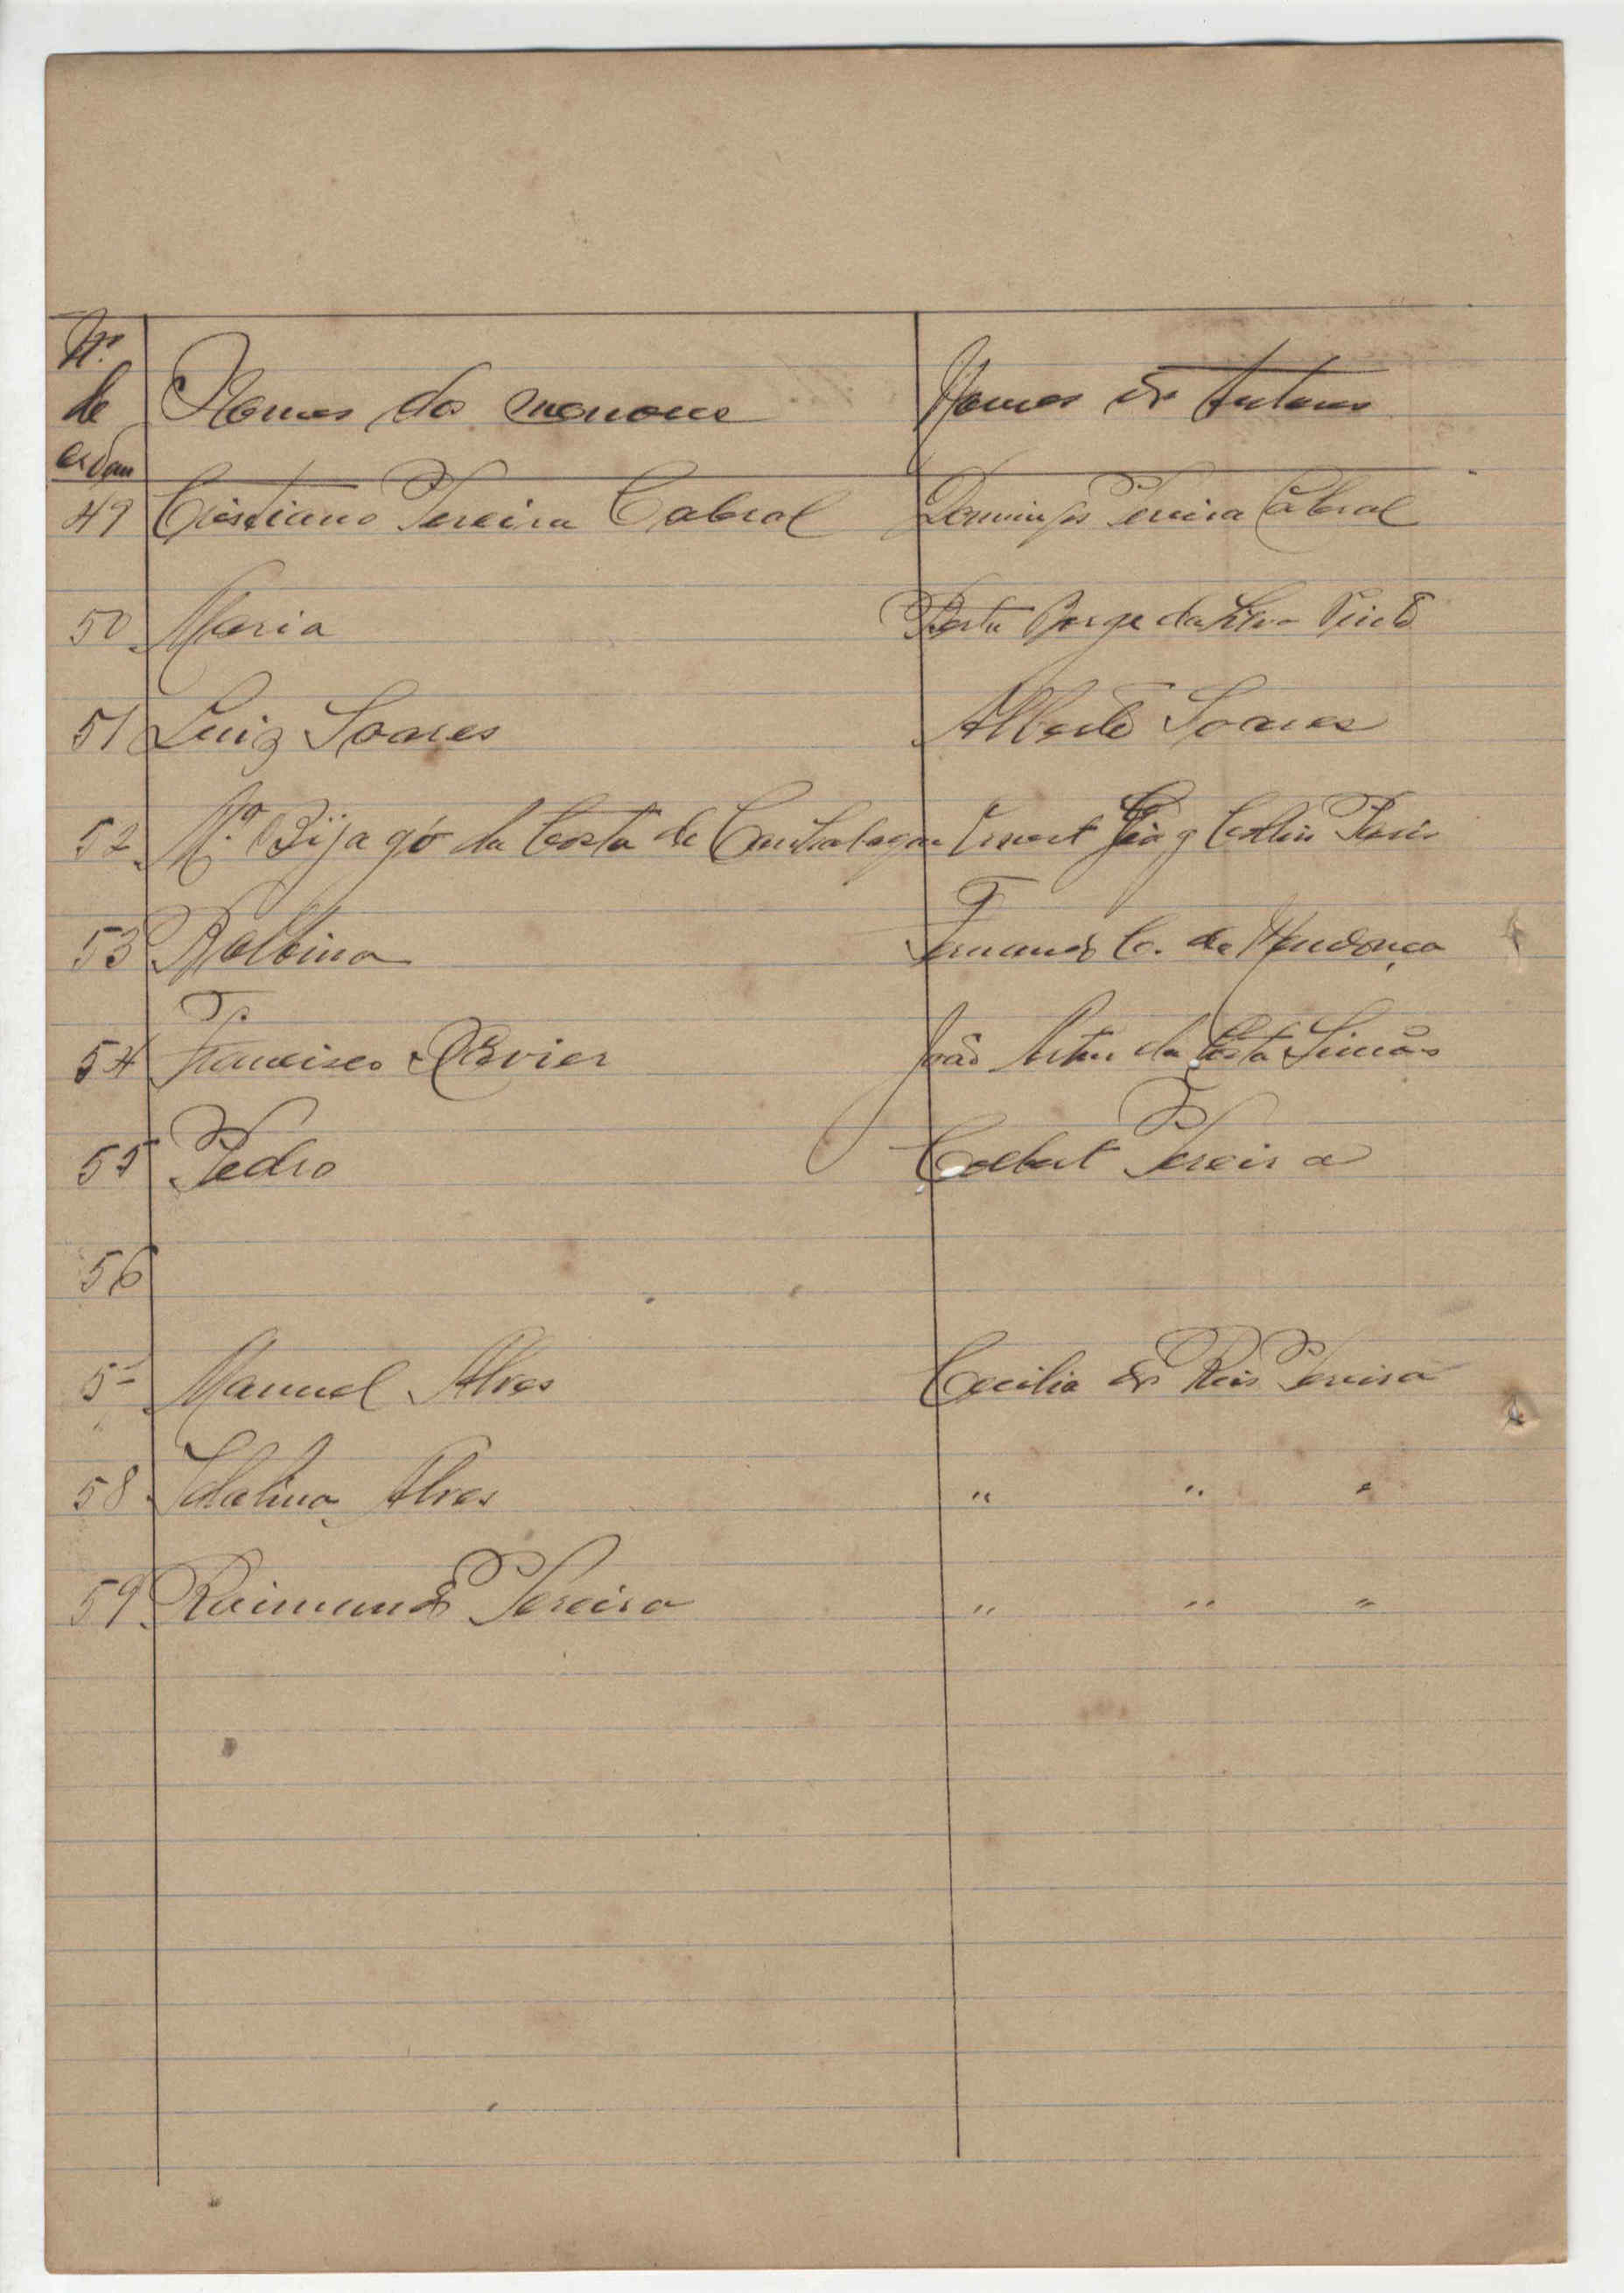 Nº
de
ordem
Nomes dos menores
Nomes dos tutores
49 Cristiano Pereira Cabral Domingos Pereira Cabral
50 Maria Berta Borge da Silva Pinto
51 Luiz Soares Alberto Soares
52 M.ª Bijagó da Costa de Ernest
53 Balbina Fernando C. de Mendonça
54 Francisco Xavier João Artur da Costa Simões
55 Pedro Colbert Pereira
56
5 Manuel Alves Cecilia dos Reis Pereira
58 Idalina Alves " " "
59 Raimundo Pereira " " "